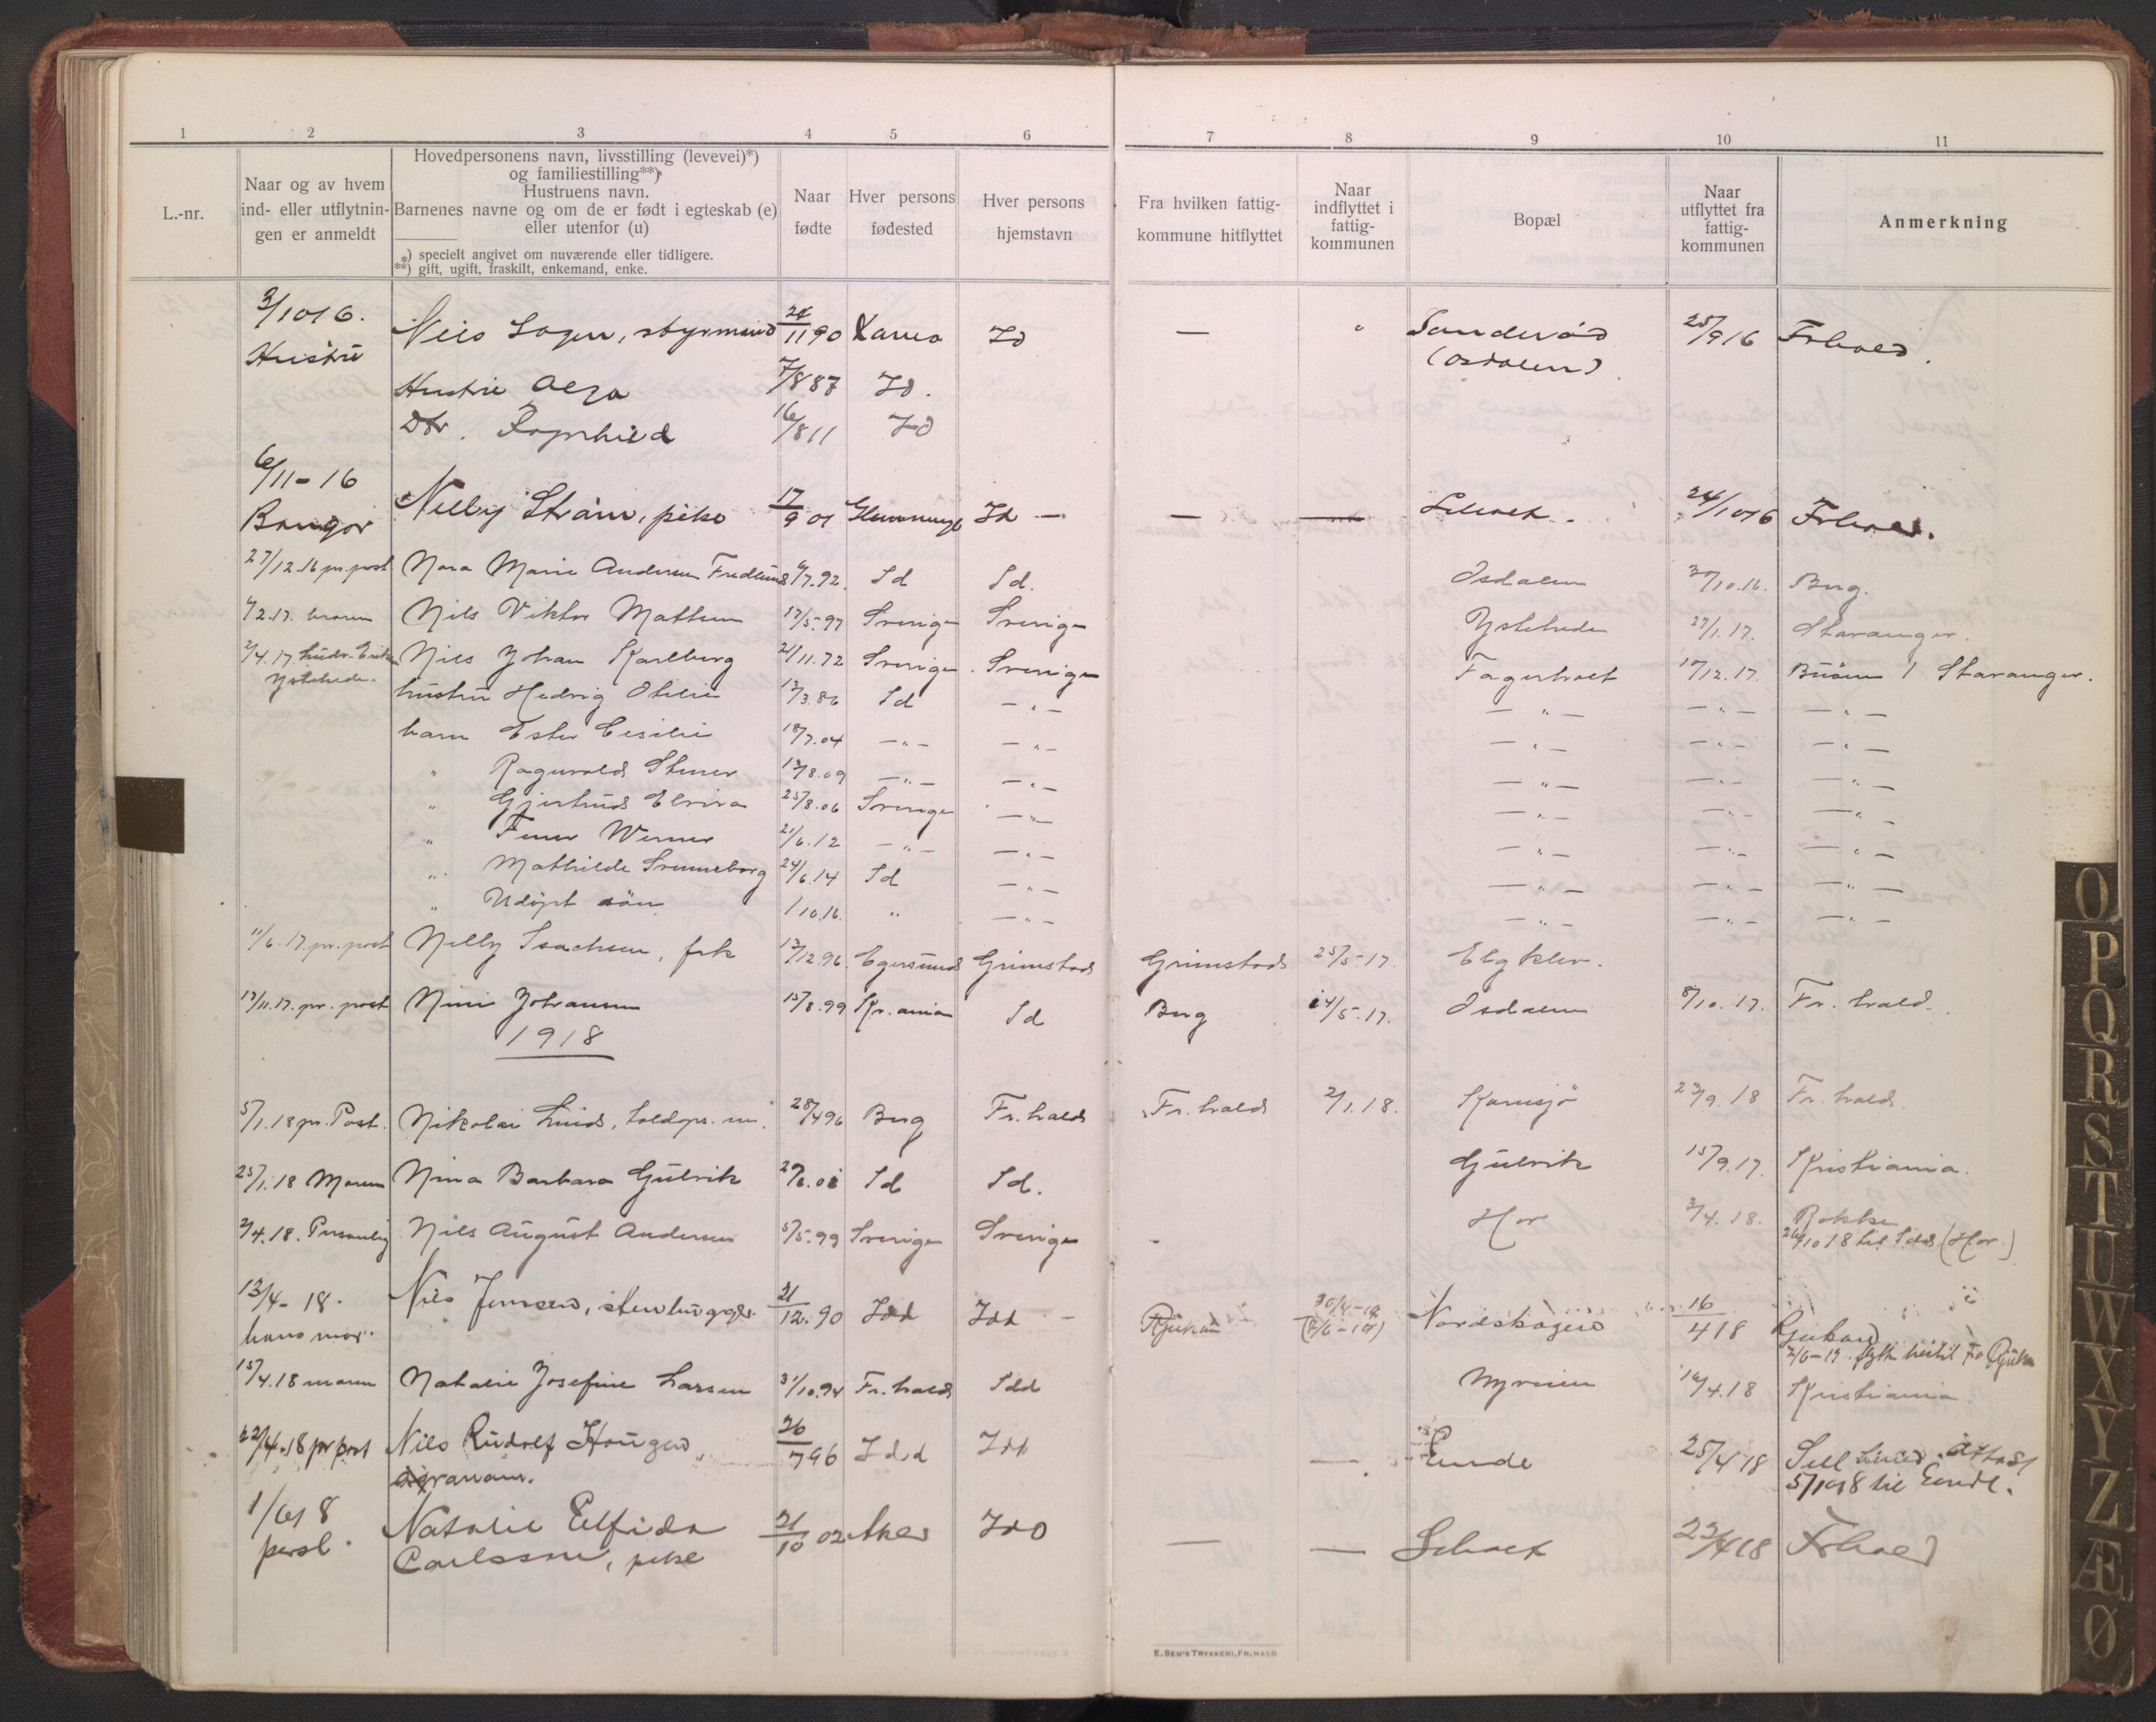 1 2 3 4 5 6 7 8 9 10 11
L.-nr.
Naar og av hvem
ind- eller utflytnin-
gen er anmeldt
Hovedpersonens navn, livsstilling (levevei)*)
og familiestilling**)
Hustruens navn.
Barnenes navne og om de er født i egteskab (e)
eller utenfor (u)
*) specielt angivet om nuværende eller tidligere.
**) gift, ugift, fraskilt, enkemand, enke.
Naar
fødte
Hver persons
fødested
Hver persons
hjemstavn
Fra hvilken fattig-
kommune hitflyttet
Naar
indflyttet i
fattig-
kommunen
Bopæl
Naar
utflyttet fra
fattig-
kommunen
Anmerkning
3/10 16. Nils, styrmand 11 90 Id — " 25/9 16 Frhald.
Hustru (Osdalen)
Hustru Olga 7/8 87 Id.
Dtr. Ragnhild 16/8 11 Id
6/11-16
Nelly Ström, pike 17/9 01 Id — — — 24/10 16 Frhald.
27/12.16 pr. post Nora Marie Andersen Fredlund 92. Id Id. Osdalen 30/10.16. Berg.
2.17. Nils Viktor Mattsen 17/5-97 Sverige Sverige Ystehede 27/1.17. Stavanger.
2/4.17 Nils Johan Karlberg 21/11.72 Sverige Sverige Fagerholt 10/12.17. Stavanger.
Ystehede.
hustru Hedvig Otilie 12/3.86 Id —"— —"— —"— —"—
barn Ester Cesilie 18/7.04 —"— —"— —"— —"— —"—
" Ragnvald Stener 12/8.09 —"— —"— —"— —"— —"—
" Gjertrud Elvira 25/8.06 Sverige —"— —"— —"— —"—
" Werner 21/6.12 —"— —"— —"— —"— —"—
" Mathilde Svenneborg 24/6.14 Id —"— —"— —"— —"—
" Udöpt sön /10.16. " —"— —"— —"— —"—
11/6.17. pr. post Nelly Isachsen, frk 12/12.96. Egersund Grimstad Grimstad 25/5-17. Elgklev.
13/11.17. pr. post Nini Johansen 15/8.99 Kr.ania Id Berg 14/5.17. Osdalen 8/10.17. Fr.hald.
1918
5/1.18 pr. Post. Nikolai Lund, 28/4 96 Berg Fr.hald Fr.hald 2/1.18. Kornsjö 23/9.18 Fr.hald.
25/1.18 Nina Barbara Gulvik Id Id. Gulvik 15/9.17. Kristiania.
2/4.18. Personlig Nils August Andersen 5/5.99 Sverige Sverige Hov 3/4.18. Rokke
26/10 18 til Idd (Hov)
13/4-18. Nils Jensen, stenhugger 21/12.90 Idd Idd — Rjukan Nordskogen 16/4 18 Rjukan
hans mor.
2/6-19. flytt hertil fra Rjukan
15/4.18 Natalie Josefine Larsen 31/10.94 Fr.hald Idd 16/4.18 Kristiania
22/4.18 pr post Nils Rudolf Haugen, 26/7 96 Idd Idd — Ende 25/4 18
5/10 18 til Ende.
1/6 18 Natalie Elfida 21/10 02 Aker Idd — — 22/4 18 Frhald
persl.
Carlssen, pike
E. SEM'S TRYKKERI, FR.HALD
O
P
Q
R
S
T
U
W
X
Y
Z
Æ
Ø